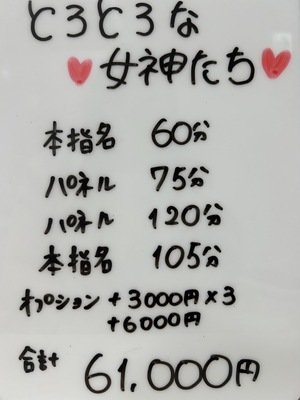 とろとろな
♥女神たち♥
本指名 60分
パネル 75分
パネル 120分
本指名 105分
オプション +3000円×3
+6000円
合計 61,000円